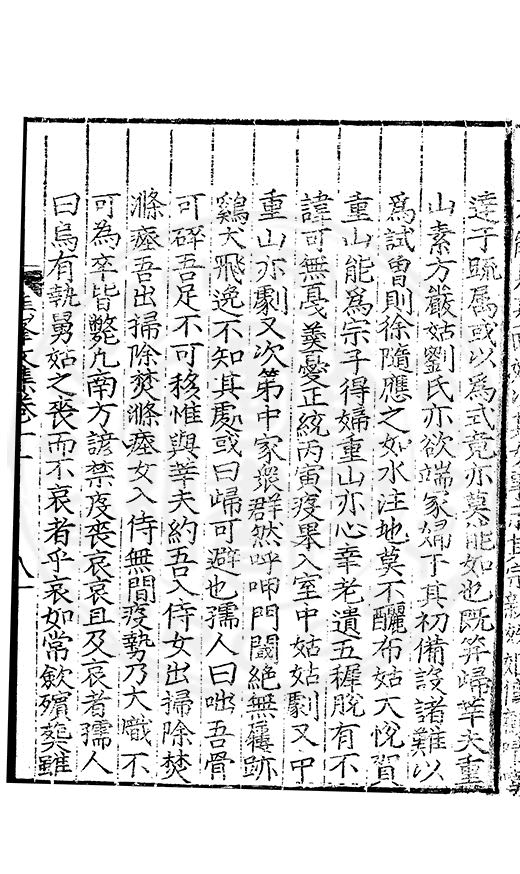 達于疏属或以爲式竟亦莫能如也既笄歸莘夫重
山素方嚴姑劉氏亦欲端冢婦下其初備設諸難以
爲試曾則徐隨應之如水注地莫不灑布姑大悅賀
重山能爲宗子得婦重山亦心幸老遺五穉脫有不
諱可無憂正統丙寅疫果入室中姑姑劇又甲
重山亦劇又次第中家衆群然呼呻門閾絶無履跡
鷄犬飛逸不知其處或曰歸可避也孺人曰咄吾骨
可碎吾足不可移惟與莘夫約吾入侍女出掃除焚
滌瘞吾出掃除焚滌瘞女入侍無間疫勢乃大熾不
可為卒皆斃凡南方諺禁疫喪哀哀且及哀者孺人
曰烏有執舅姑之喪而不哀者乎哀如常歛殯葬雖
文集卷十一 八